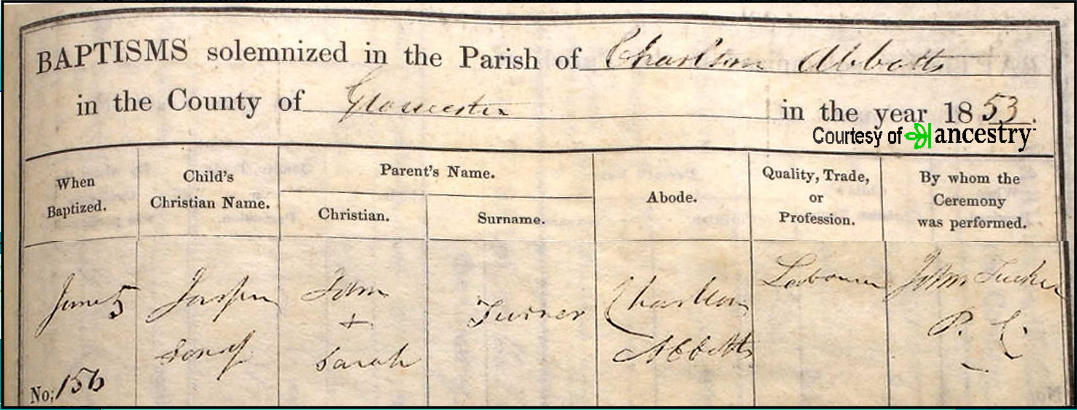 BAPTISMS solemnized in the Parish of Charlton Abbotts
in the County of Gloucester in the year 1853.
Courtesy of ancestry
When
Baptized.
Child's
Christian Name.
Parent's Name.
Christian.
Surname.
Abode.
Quality, Trade,
or
Profession.
By whom the
Ceremony
was performed.
June 5
No; 156
son of
John
+
Sarah
Turner
Charlton
Abbotts
Labourer
John Tucker
P. C.